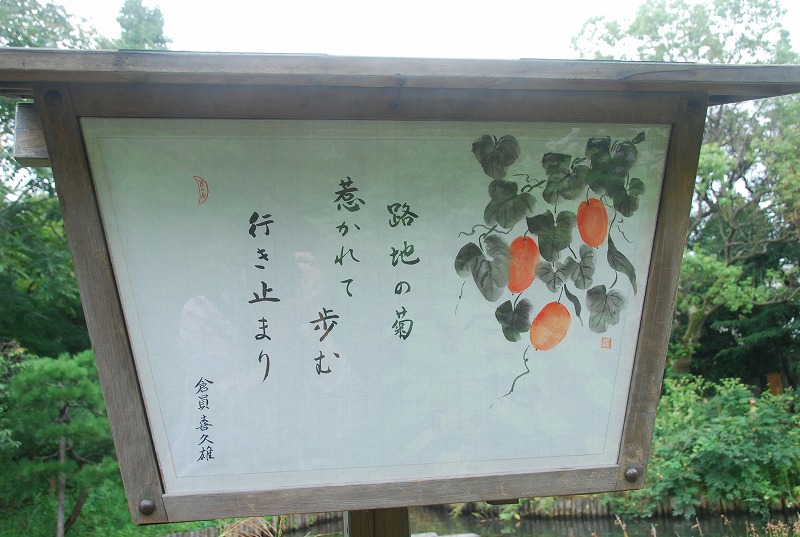 路地の菊
惹かれて歩む
行き止まり
倉員喜久雄